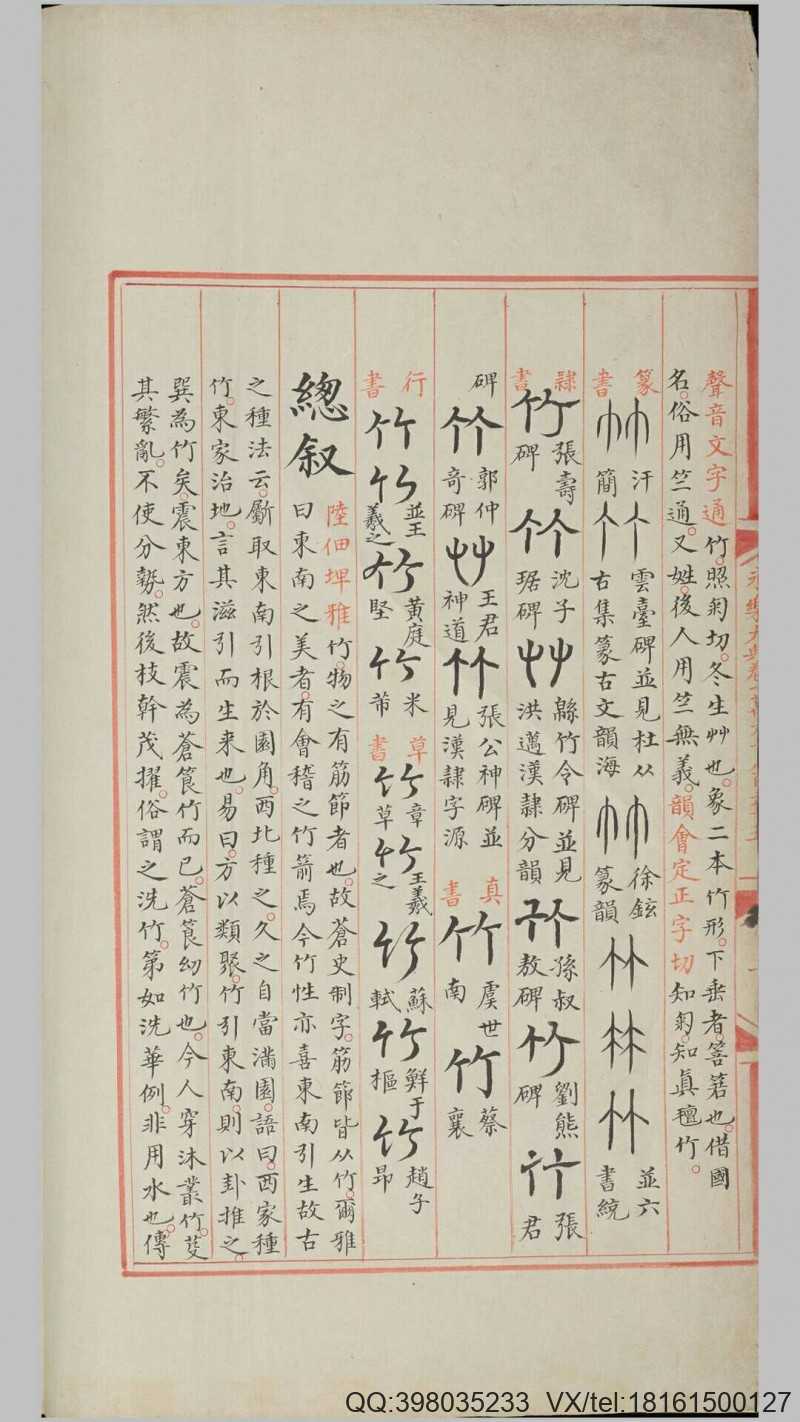 聲音文字通竹。照匊切。冬生艸也。象二本竹形。下垂者。箁箬也。借國
名。俗用竺通。又姓。後人用竺無義。韻會定正字切知匊。知真䆄竹。
篆書 竹 汗簡 竹 雲臺碑並見杜从古集篆古文韻海 竹 徐鉉篆韻 竹 竹 竹 並六書統
隸書 竹 張壽碑 竹 沈子琚碑 竹 緜竹令碑並見洪邁漢隸分韻 竹 孫叔敖碑 竹 劉熊碑 竹 張君
碑 竹 郭仲奇碑 竹 王君神道 竹 張公神碑並見漢隸字源 真書 竹 虞世南 竹 蔡襄
行書 竹 竹 並王羲之 竹 黃庭堅 竹 米芾 草書 竹 章草 竹 王羲之 竹 蘇軾 竹 鮮于樞 竹 趙子昂
總叙
陸佃埤雅竹。物之有筋節者也。故蒼史制字。筋節皆从竹。爾雅
曰東南之美者。有會稽之竹箭焉今竹性亦喜東南引生故古
之種法云。斸取東南引根於園角。西北種之。久之自當滿園。語曰。西家種
竹。東家治地。言其滋引而生来也。易曰。方以類聚。竹引東南。則以卦推之。
巽為竹矣。震東方也。故震為蒼筤竹而已。蒼筤幼竹也。今人穿沐叢竹。芟
其繁亂。不使分勢。然後枝幹茂擢。俗謂之洗竹。第如洗華例。非用水也。傳
QQ:398035233 VX/tel:18161500127